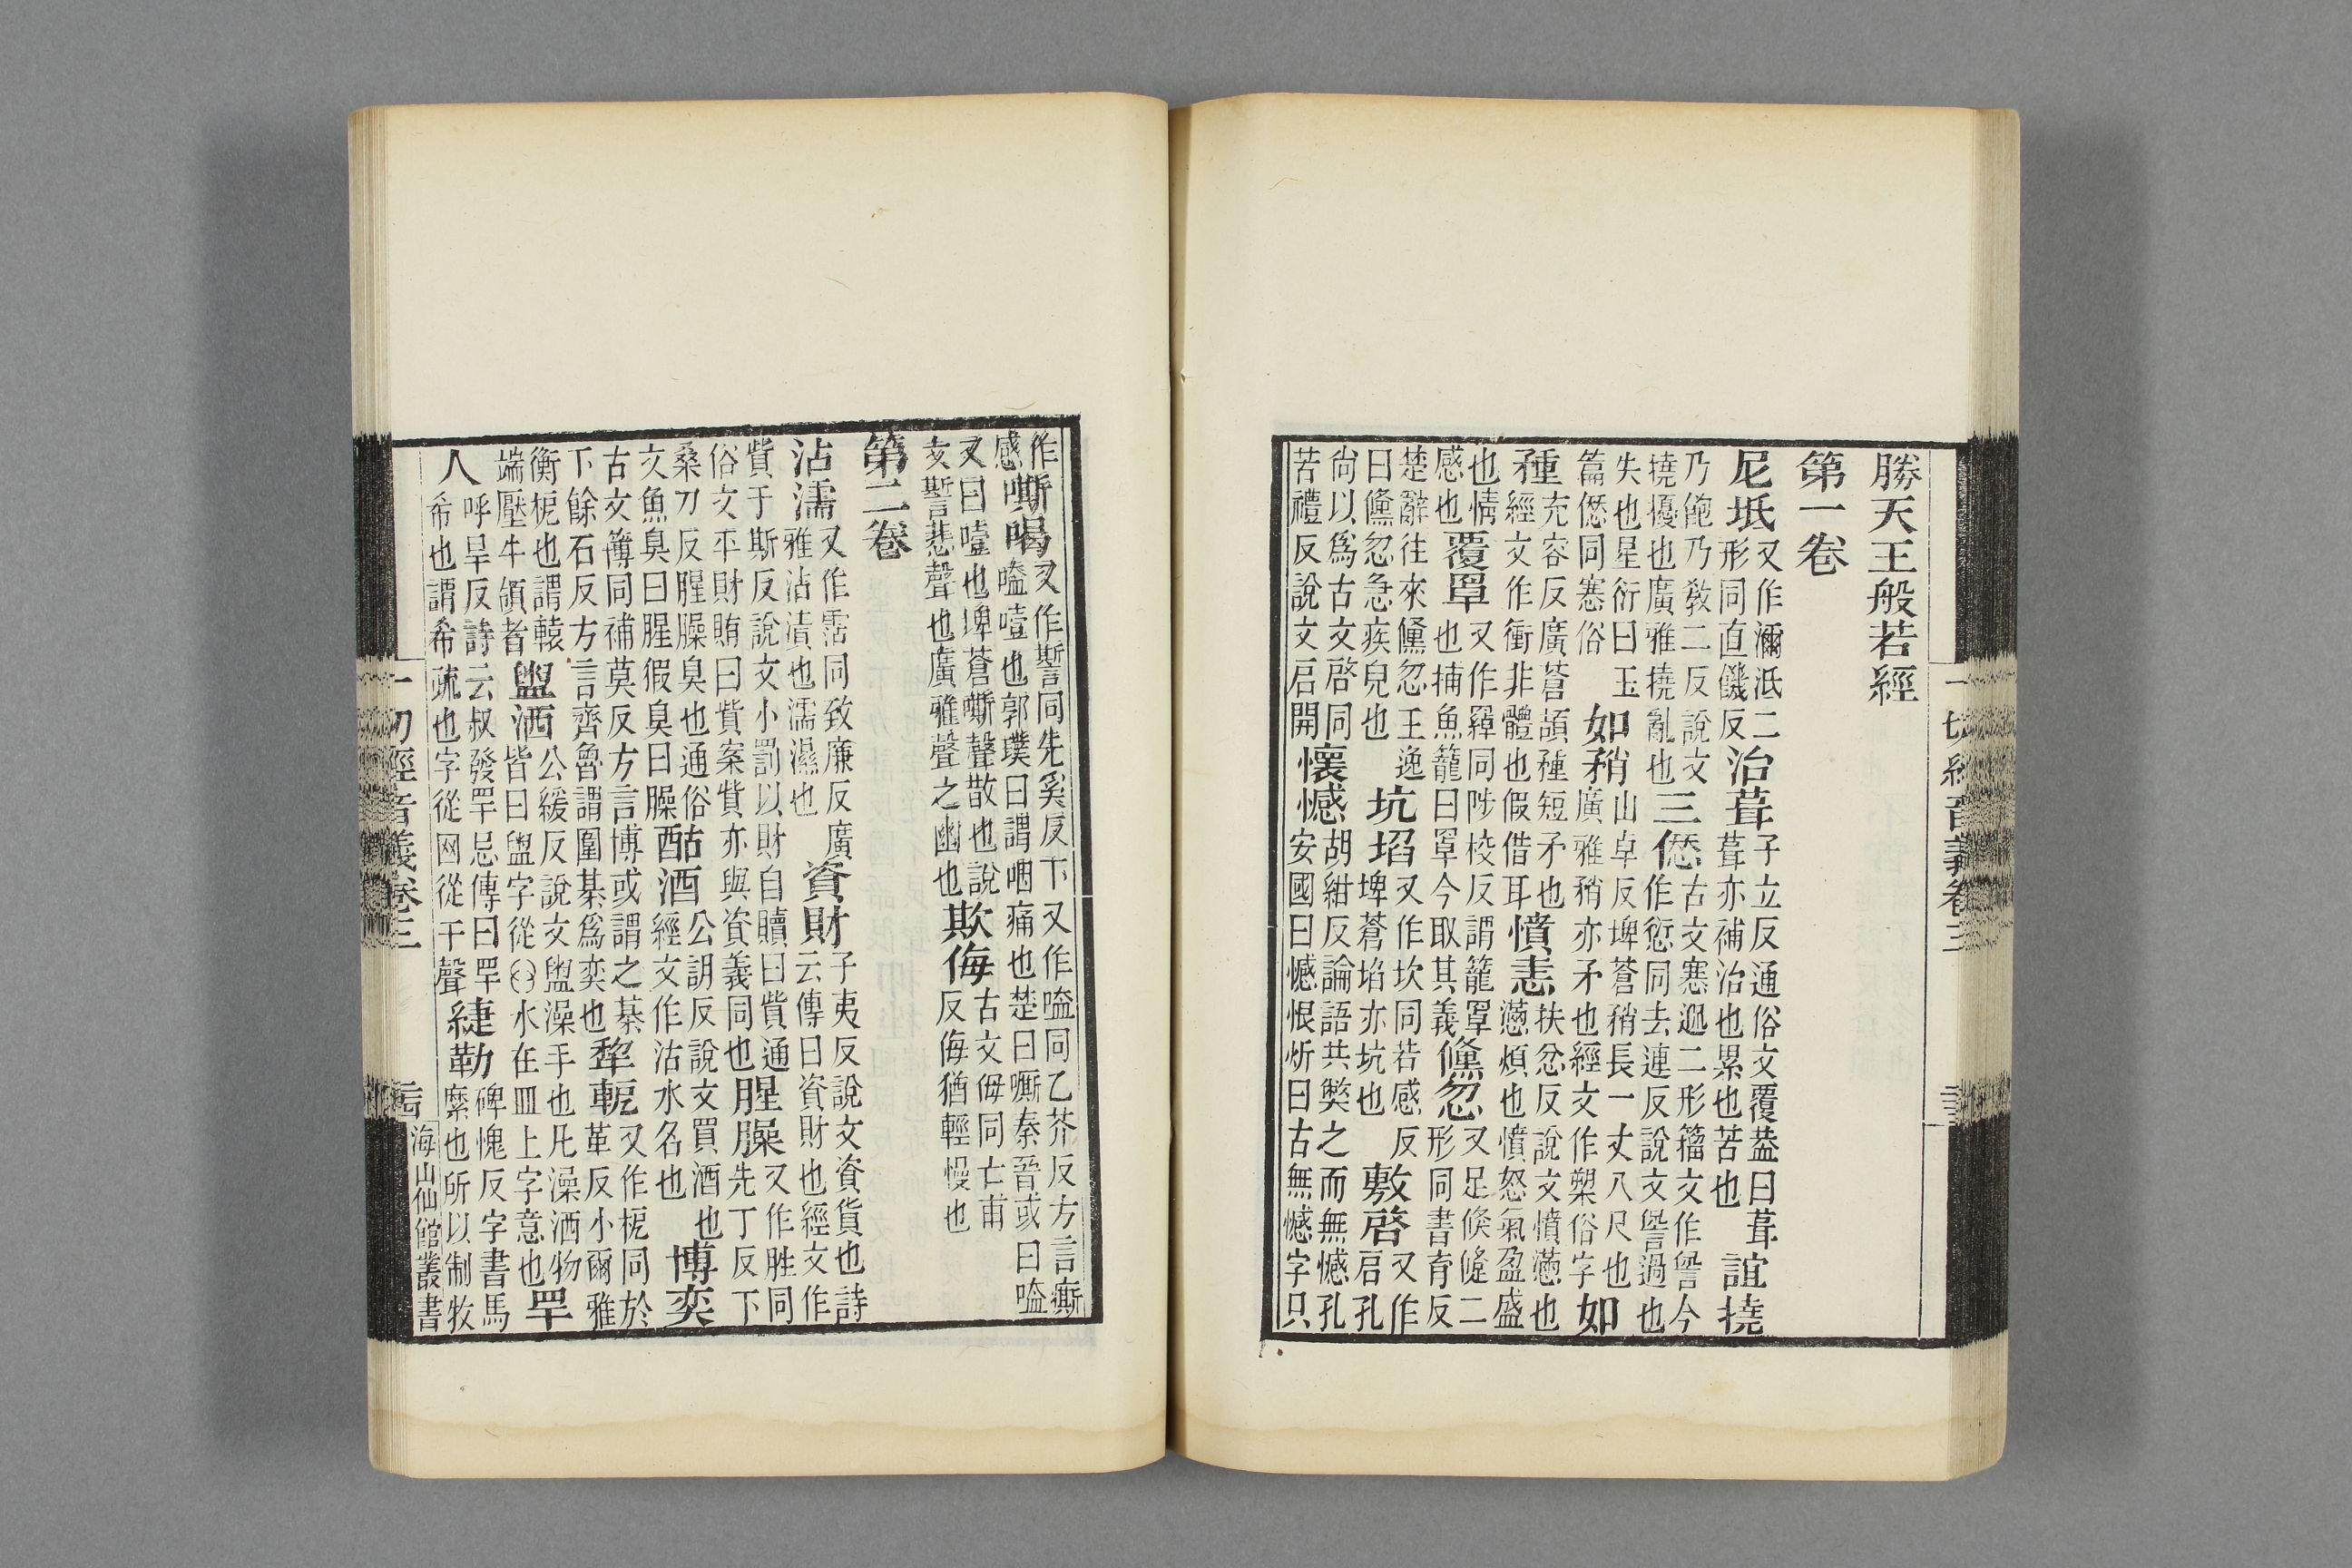 一切經音義卷三
勝天王般若經
第一卷
尼坻又作濔泜二形同直饑反治葺子立反通俗文覆葢曰葺葺亦補治也累也苦也誼撓
乃飽乃敎二反說文撓擾也廣雅撓亂也三僁古文寋二形籀文作諐今作愆同去連反說文諐過也
失也星衍曰玉篇僁同寋俗如矟山卓反埤蒼矟長一丈八尺也廣雅矟亦矛也經文作槊俗字如
種充容反廣蒼種短矛也經文作衝非體也假借耳憤恚扶忿反說文憤懣也懣煩也憤怒氣盈盛
也情感也覆罩又作羄同陟校反謂籠罩也捕魚籠曰罩今取其義儵忽又足倏二形同書育反
楚辭往來儵忽王逸曰儵忽急疾皃也坑埳又作坎同若感反埤蒼埳亦坑也敷啓又作启孔
尙以爲古文啓同苦禮反說文启開懷憾胡紺反論語共獘之而無憾孔安國曰憾恨炘曰古無憾字只
作感嘶喝又作誓同先奚反下又作嗌同乙芥反方言嘶嗌噎也郭璞曰謂咽痛也楚曰嘶秦晉或曰嗌
又曰噎也埤蒼嘶聲散也說文誓悲聲也廣雅聲之幽也欺侮古文㑄同亡甫反侮猶輕慢也
第二卷
沾濡又作霑同致廉反廣雅沾漬也濡濕也資財子夷反說文資貨也詩云傳曰資財也經文作
貲于斯反說文小罰以財自贖曰貲通俗文平財賄曰貲案貲亦與資義同也腥臊又作胜同先丁反下
桑刀反腥臊臭也通俗文魚臭曰腥猳臭曰臊酤酒公反說文買酒也經文作沽水名也博奕
古文簙同補莫反方言博或謂之棊下餘石反方言齊魯謂圍棊爲奕也犂軛又作枙同於革反小爾雅
衡枙也謂轅端壓牛領者盥洒公緩反說文盥澡手也凡澡洒物皆曰盥字從水在皿上字意也罕
人呼旱反詩云叔發罕忌傳曰罕希也謂希疏也字從网從干聲緁勒碑愧反字書馬縻也所以制牧
一切經音義卷三
海山仙館叢書